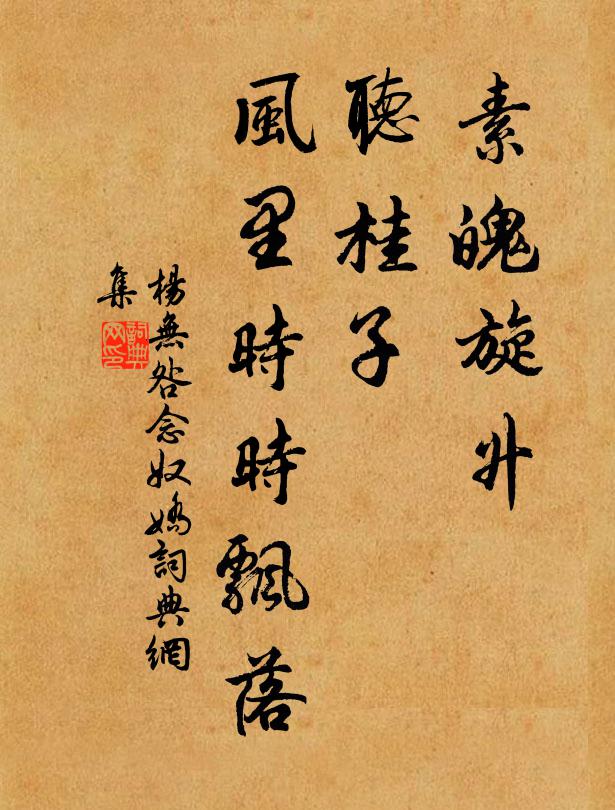 素魄旋升
聽桂子
風里時時飄落
楊無咎念奴嬌詞典網
集
詞典
网印